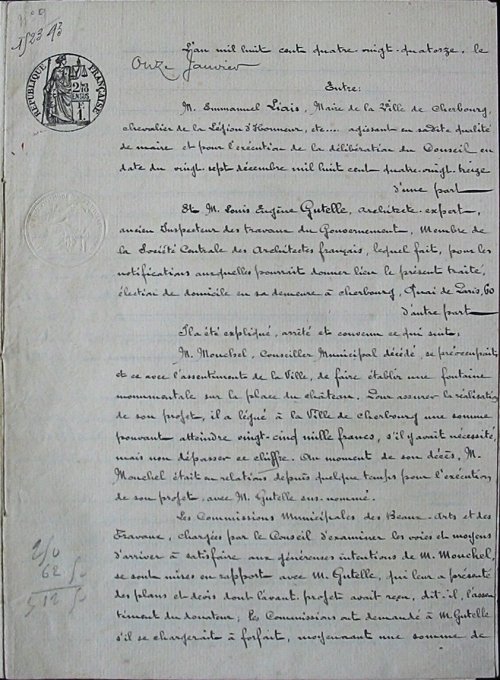 N° 9
1523 43
RÉPUBLIQUE FRANÇAISE
L'an mil huit cent quatre-vingt-quatorze, le
Onze Janvier
Entre:
M. Emmanuel Liais, Maire de la Ville de Cherbourg,
chevalier de la Légion d'Honneur, etc.... agissant en sadite qualité
de maire et pour l'exécution de la délibération du Conseil en
date du vingt-sept décembre mil huit cent quatre-vingt-treize
d'une part
Et M. Louis Eugène Gutelle, Architecte-expert,
ancien Inspecteur des travaux du Gouvernement, Membre de
la Société Centrale des Architectes français, lequel fait, pour les
notifications auxquelles pourrait donner lieu le présent traité,
élection de domicile en sa demeure à Cherbourg, Quai de Paris, 60
d'autre part
Il a été expliqué, arrêté et convenu ce qui suit:
M. Mouchel, Conseiller Municipal décédé, se préoccupait
et ce avec l'assentiment de la Ville, de faire établir une fontaine
monumentale sur la place du château. Pour assurer la réalisation
de son projet, il a légué à la Ville de Cherbourg une somme
pouvant atteindre vingt-cinq mille francs, s'il y avait nécessité,
mais non dépasser ce chiffre. Au moment de son décès, M.
Mouchel était en relations depuis quelque temps pour l'exécution
de son projet, avec M. Gutelle sus-nommé.
Les Commissions Municipales des Beaux-Arts et des
Travaux, chargées par le Conseil d'examiner les voies et moyens
d'arriver à satisfaire aux généreuses intentions de M. Mouchel,
se sont mises en rapport avec M. Gutelle, qui leur a présenté
des plans et devis dont l'avant-projet avait reçu, dit-il, l'assen-
timent du donateur; les Commissions ont demandé à M. Gutelle
s'il se chargerait à forfait, moyennant une somme de
250
62 50
312 50